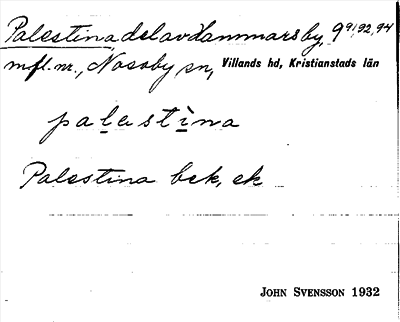 Palestina del av Hammarsby, 9 91,92,94
m.fl. nr., Nosaby sn, Villands hd, Kristianstads län
palestìna
Palestina bek, ek
JOHN SVENSSON 1932